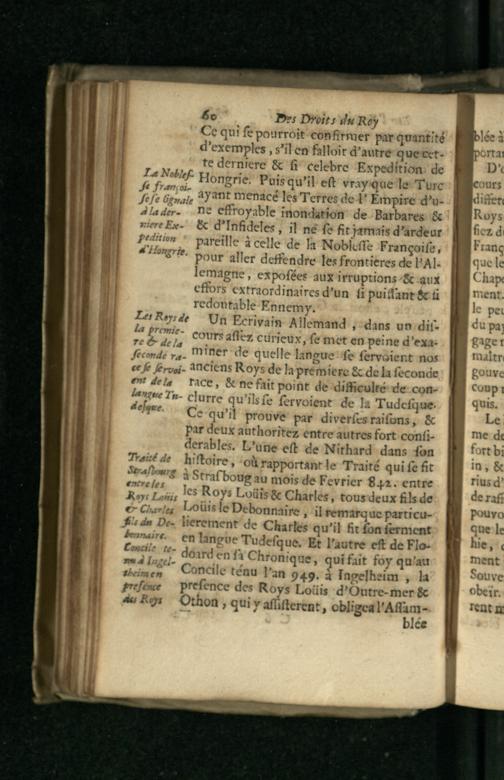 60 Des Droits du Roy
Ce qui ſe pourroit confirmer par quantité
d'exemples, s'il en falloit d'autre que cet-
te derniere & ſi celebre Expedition de
Hongrie. Puis qu'il eſt vray que le Turc
ayant menacé les Terres de l'Empire d'u-
ne effroyable inondation de Barbares &
& d'Infideles, il ne ſe fit jamais d'ardeur
pareille à celle de la Nobleſſe Françoiſe,
pour aller deffendre les frontieres de l'Al-
lemagne, expoſées aux irruptions & aux
efforts extraordinaires d'un ſi puiſſant & ſi
redoutable Ennemy.
Un Ecrivain Allemand, dans un diſ-
cours aſſez curieux, ſe met en peine d'exa-
miner de quelle langue ſe ſervoient nos
anciens Roys de la premiere & de la ſeconde
race, & ne fait point de difficulté de con-
clurre qu'ils ſe ſervoient de la Tudeſque.
Ce qu'il prouve par diverſes raiſons, &
par deux authoritez entre autres fort conſi-
derables. L'une eſt de Nithard dans ſon
hiſtoire, où rapportant le Traité qui ſe fit
à Straſboug au mois de Fevrier 842. entre
les Roys Loüis & Charles, tous deux fils de
Loüis le Debonnaire, il remarque particu-
lierement de Charles qu'il fit ſon ſerment
en langue Tudeſque. Et l'autre eſt de Flo-
doard en ſa Chronique, qui fait foy qu'au
Concile tenu l'an 949. à Ingelheim, la
preſence des Roys Loüis d'Outre-mer &
Othon, qui y aſſiſterent, obligea l'Aſſam-
blée
La Nobleſ-
ſe françoi-
ſe ſe ſignale
à la der-
niere Ex-
pedition
d'Hongrie.
Les Roys de
la premie-
re & de la
ſeconde ra-
ce ſe ſervoi-
ent de la
langue Tu-
deſque.
Traité de
Straſbourg
entre les
Roys Loüis
& Charles
fils du De-
bonnaire.
Concile te-
nu à Ingel-
heim en
preſence
des Roys
blée à
porta
D'
cours
differe
Roys
fiez d
Franç
que le
Chape
ment.
le peu
du pay
gage
maître
gouve
coup
quis.
Le
me de
fort bi
in, &
rius d'
de raſſ
pouvo
que le
hie,
ment
Souve
obeïr.
rent